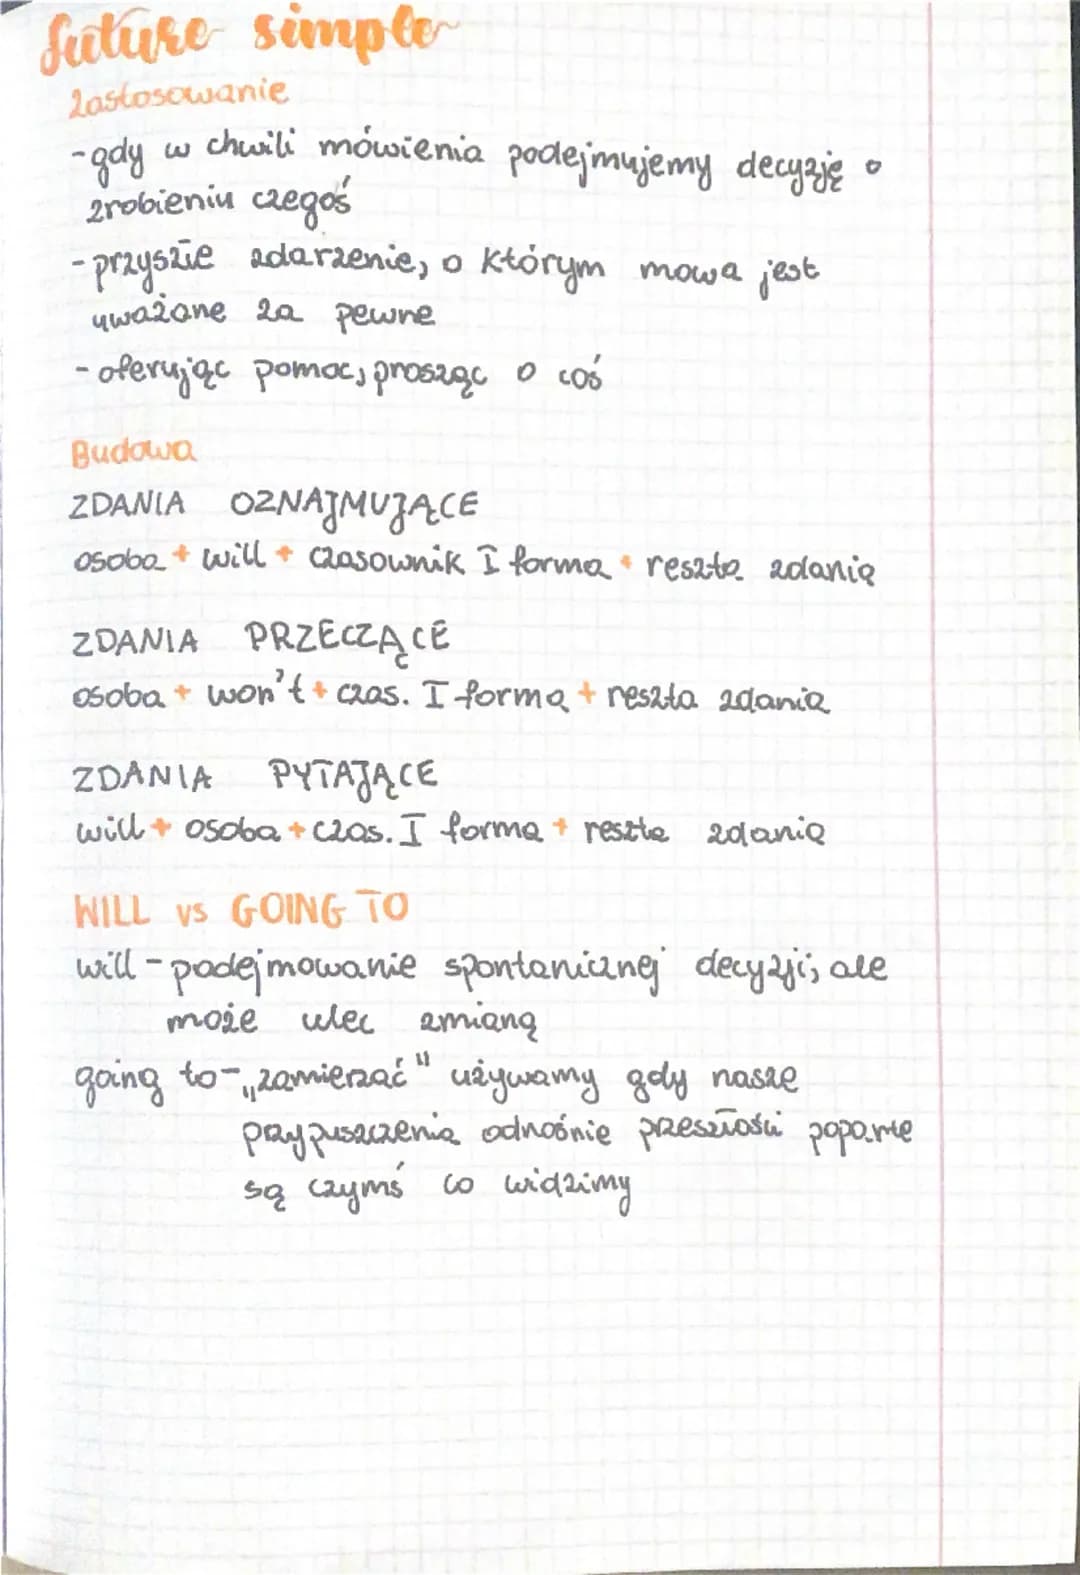 future simple
Zastosowanie
- gdy w chwili mówienia podejmujemy decyzję o
zrobieniu czegoś
- przyszłe zdarzenie, o którym mowa jest
uważane za pewne
- oferując pomoc, prosząc o coś
Budowa
ZDANIA OZNAJMUJĄCE
osoba + will + czasownik I forma + reszta zdania
ZDANIA PRZECZĄCE
osoba + won't + czas. I forma + reszta zdania
ZDANIA PYTAJĄCE
will + osoba + czas. I forma + reszta zdania
WILL vs GOING TO
will - podejmowanie spontanicznej decyzji, ale
może ulec zmianą
going to - „zamierzać" używamy gdy nasze
przypuszczenia odnośnie przeszłości poparte
są czymś co widzimy